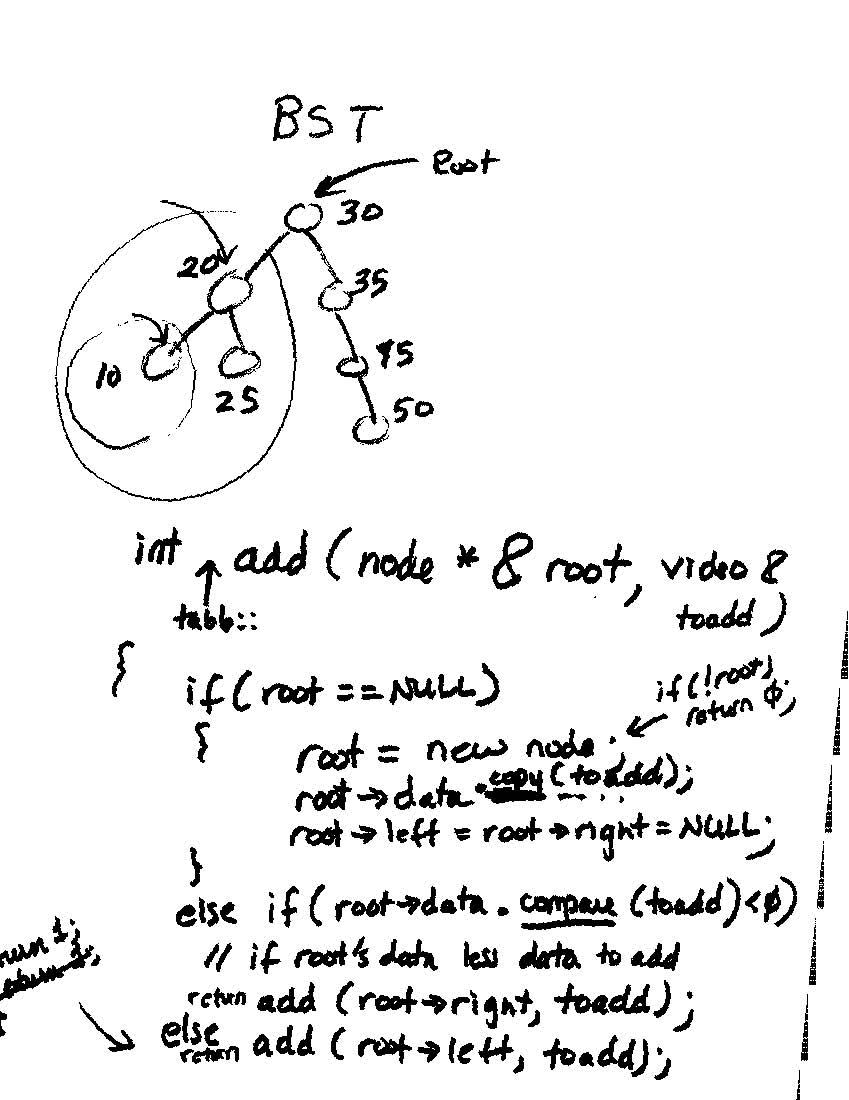 BST
Root
30
20
35
10
25
45
50
int add (node * & root, video &
table::
toadd )
{
if (root == NULL)
if (!root)
return 0;
{
root = new node;
root → data . copy (toadd);
root → left = root → right = NULL;
}
else if (root → data . compare (toadd) < 0)
// if root's data less data to add
return add (root → right, toadd);
else
return add (root → left, toadd);